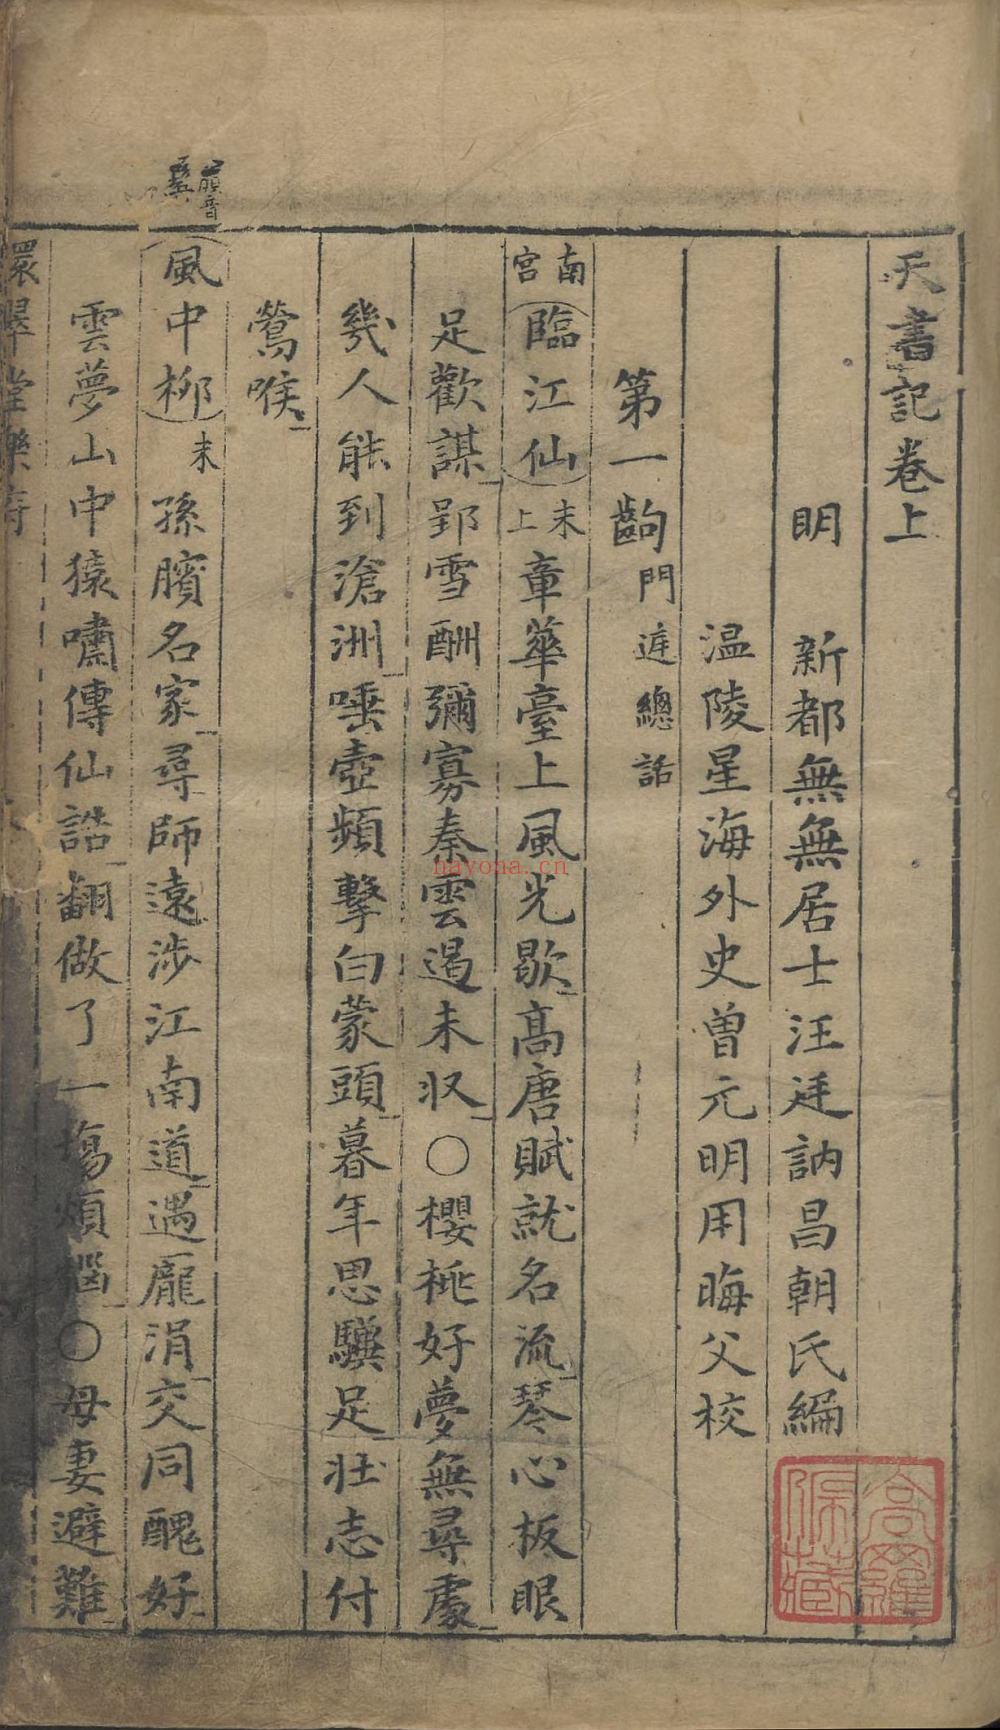 天書記卷上
明 新都無無居士汪廷訥昌朝氏編
温陵星海外史曾元明用晦父校
第一齣 門遮總話
南宮 臨江仙 末上 章華臺上風光歇高唐賦就名流琴心板眼
足歡謀郢雪酬彌寡秦雲遏未収○櫻桃好夢無尋處
幾人能到滄洲唾壺頻擊白蒙頭暮年思驥足壯志付
鶯喉
驥音
風中柳 末 孫臏名家尋師遠涉江南道遇龐涓交同醜好
雲夢山中猿嘯傳仙誥翻做了一塲煩惱○母妻避難
環翠堂樂府
高羅佩藏
nayona.cn